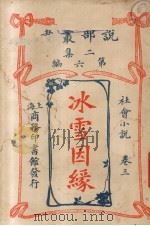 說部叢書
二集
第六編
社會小說 卷三
冰雪因緣
上海
商務印書館發行